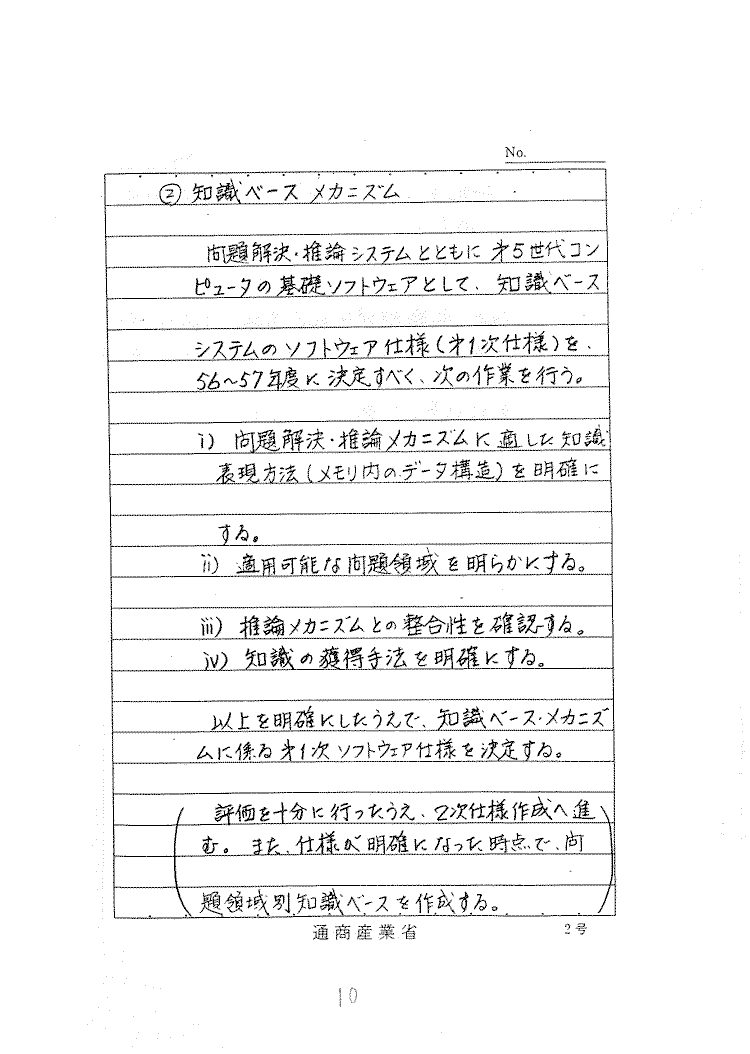 No.
② 知識ベース メカニズム
問題解決・推論システムとともに 第5世代コン
ピュータの基礎ソフトウェアとして、知識ベース
システムのソフトウェア仕様(第1次仕様)を、
56~57年度に決定すべく、次の作業を行う。
i) 問題解決・推論メカニズムに適した知識
表現方法(メモリ内のデータ構造)を明確に
する。
ii) 適用可能な問題領域を明らかにする。
iii) 推論メカニズムとの整合性を確認する。
iv) 知識の獲得手法を明確にする。
以上を明確にしたうえで、知識ベース・メカニズ
ムに係る第1次ソフトウェア仕様を決定する。
(評価を十分に行ったうえ、2次仕様作成へ進
む。また、仕様が明確になった時点で、問
題領域別知識ベースを作成する。)
通商産業省 2号
10